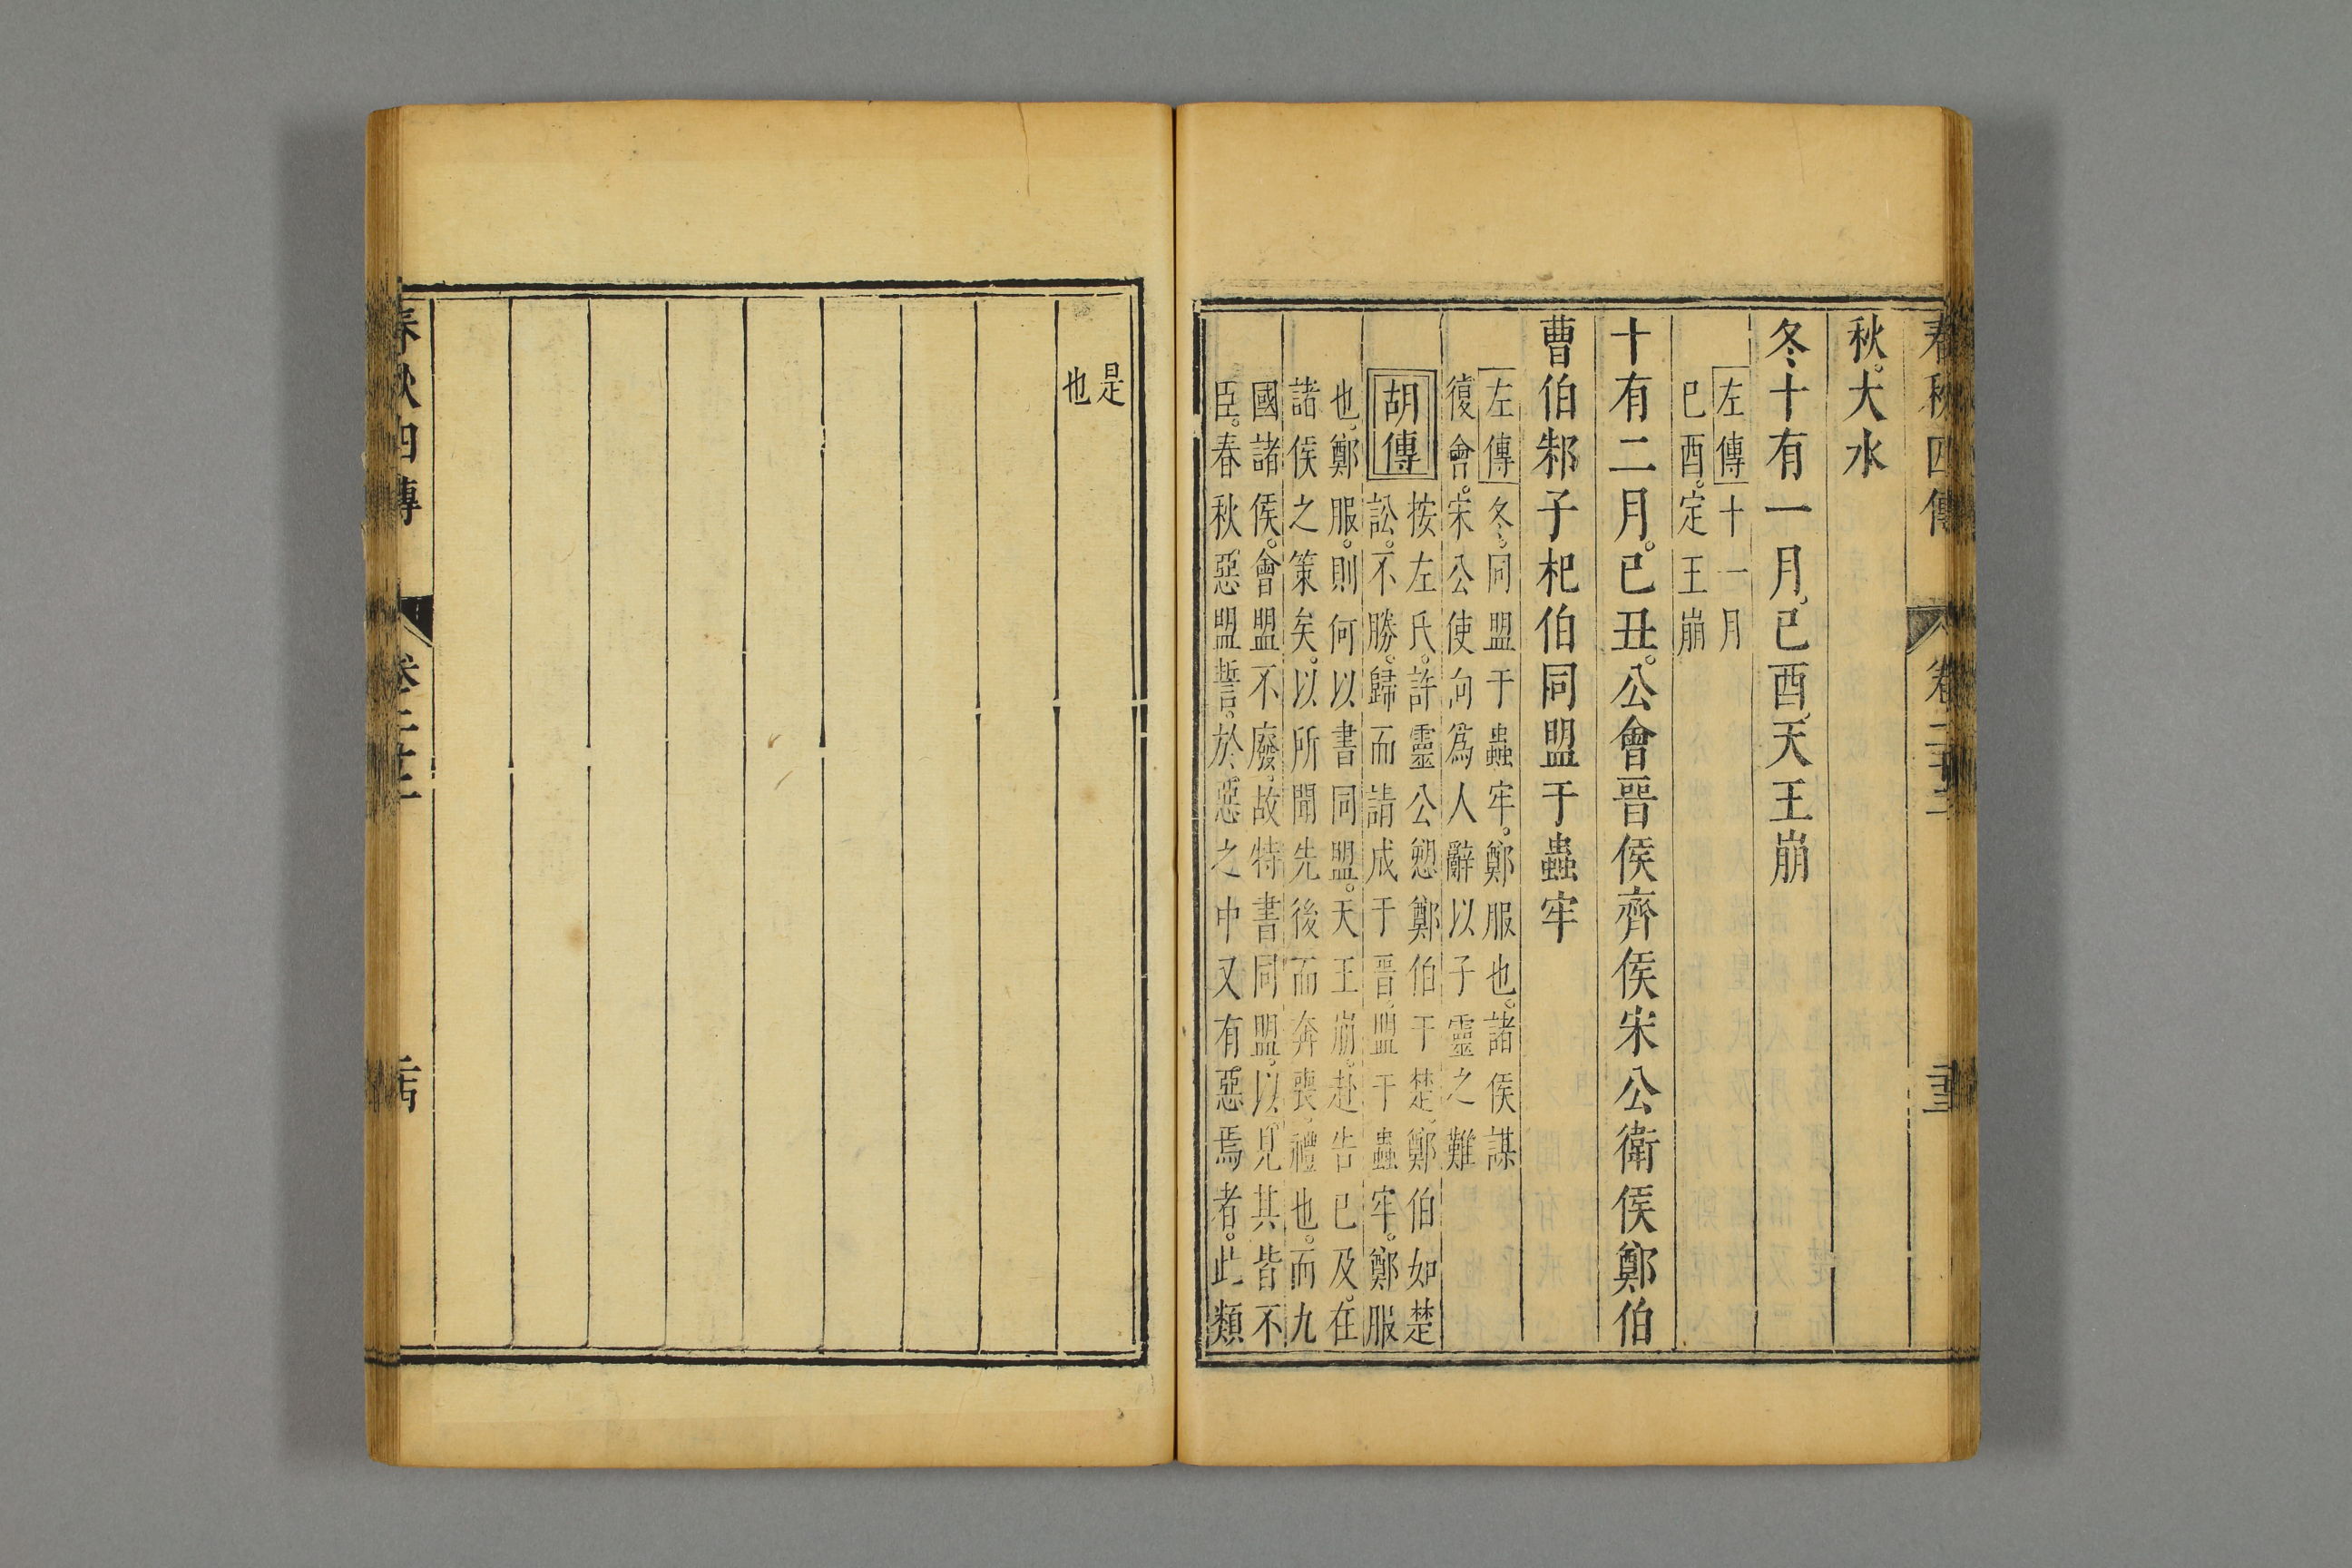 春秋四傳 卷二十二
秋。大水
冬。十有一月。己酉。天王崩
左傳十一月
己酉。定王崩
十有二月。己丑。公會晉侯齊侯宋公衛侯鄭伯
曹伯邾子杞伯同盟于蟲牢
左傳冬。同盟于蟲牢。鄭服也。諸侯謀
復會。宋公使向爲人辭以子靈之難
胡傳按左氏。許靈公愬鄭伯于楚。鄭伯如楚
訟。不勝。歸而請成于晉。盟于蟲牢。鄭服
也。鄭服。則何以書同盟。天王崩。赴告已及。在
諸侯之策矣。以所聞先後而奔喪。禮也。而九
國諸侯。會盟不廢。故特書同盟。以見其皆不
臣。春秋惡盟誓。於惡之中又有惡焉者。此類
是
也
春秋四傳 卷二十二